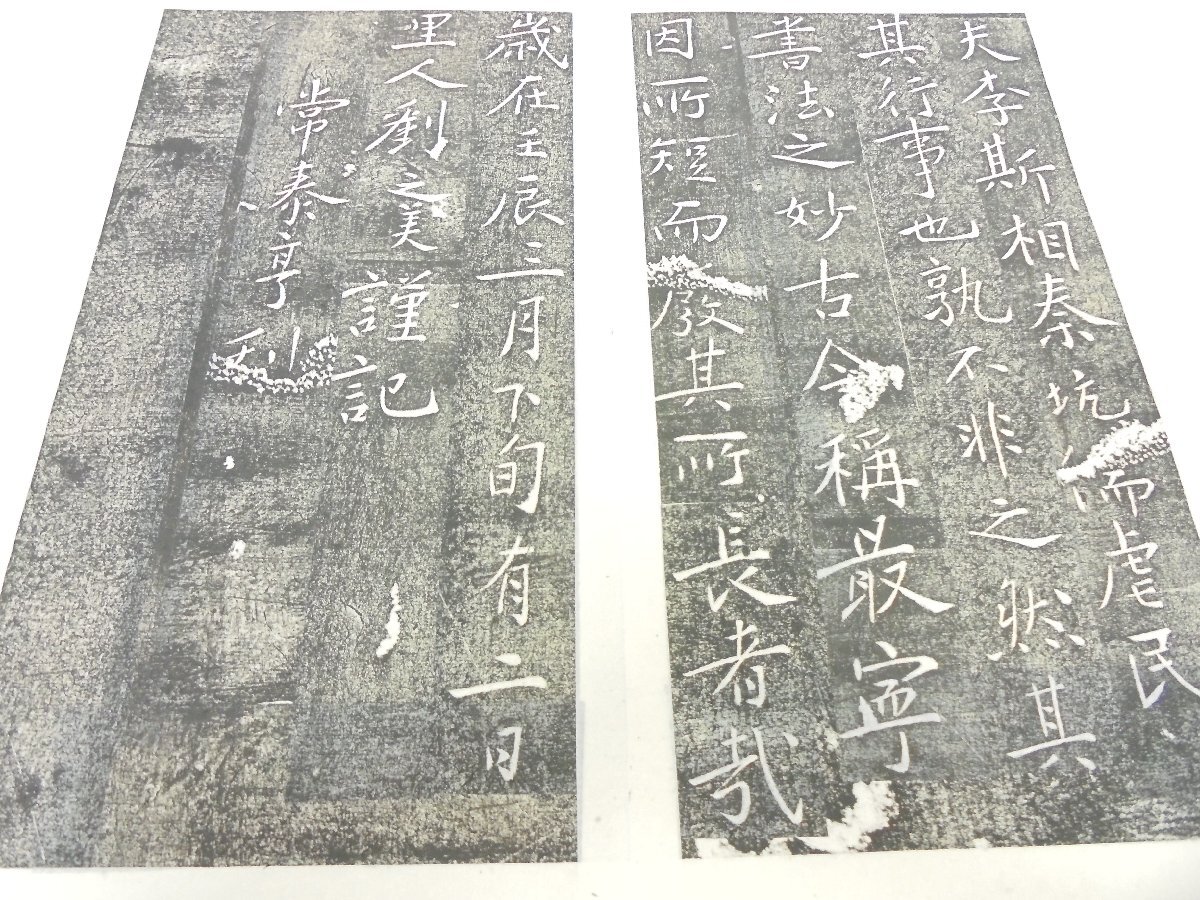 夫李斯相秦坑儒虐民
其行事也孰不非之然其
書法之妙古今稱最寧
因所短而廢其所長者哉
歲在壬辰三月下旬有二日
里人劉之美謹記
常泰亨刊